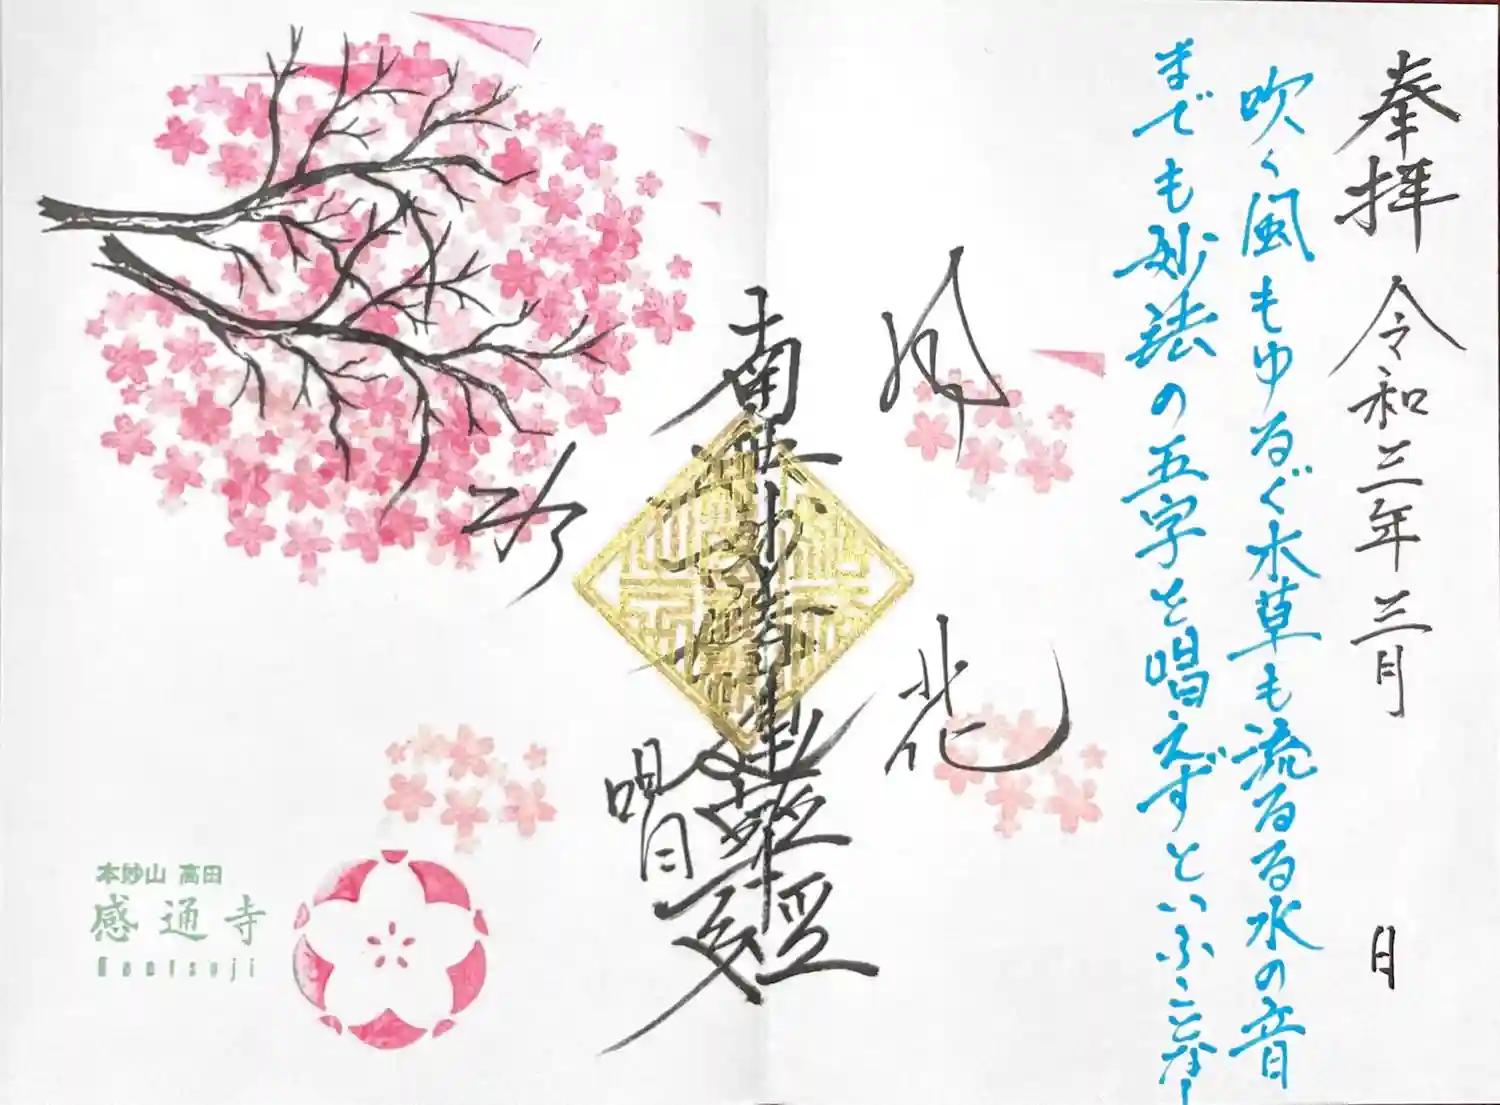 奉拝 令和三年三月 日
吹く風もゆるぐ水草も流るる水の音
までも妙法の五字を唱えずといふことなし
風花
南無妙法蓮華経
本妙山 高田
感通寺